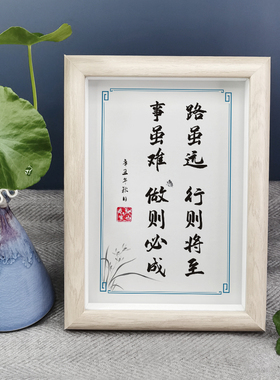 路虽远 行则将至
事虽难 做则必成
辛丑年秋月